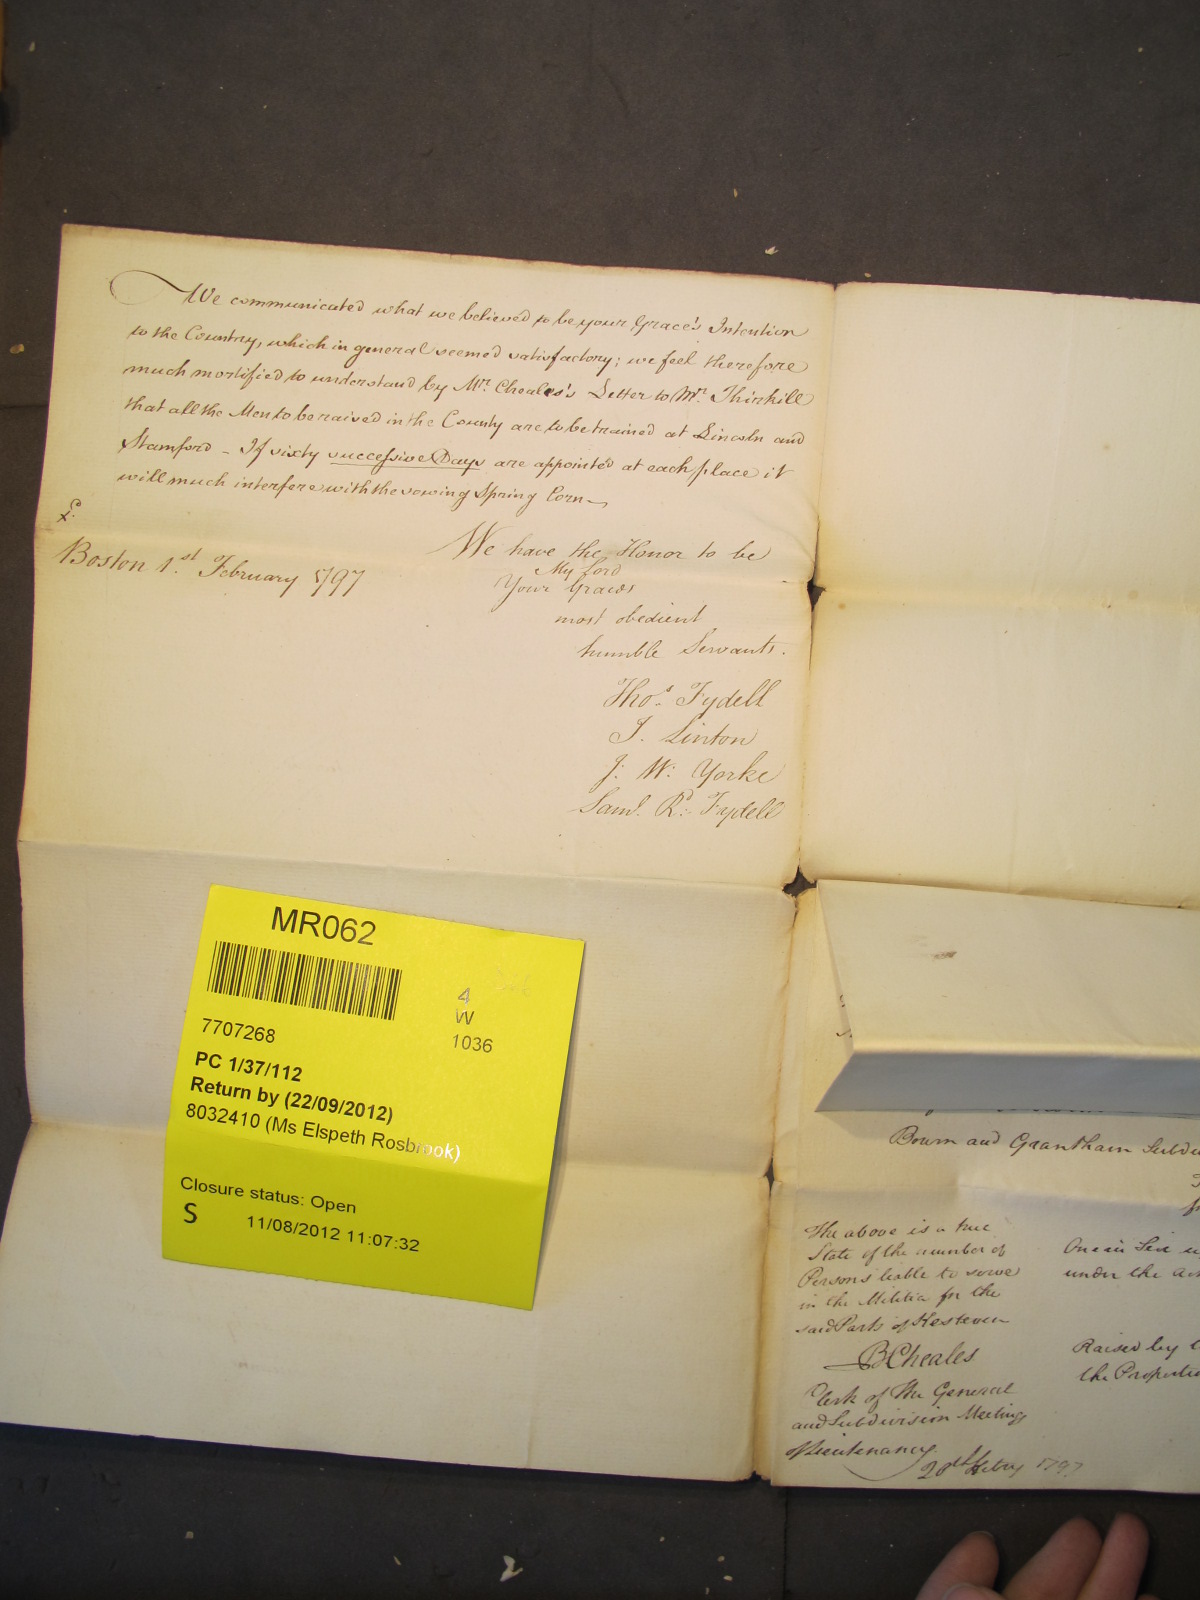 We communicated what we believed to be your Grace's Intention
to the Country, which in general seemed satisfactory; we feel therefore
much mortified to understand by Mr. Cheales's Letter to Mr. Thirkill
that all the Men to be raised in the County are to be trained at Lincoln and
Stamford – If sixty successive Days are appointed at each place it
will much interfere with the sowing Spring Corn –
Boston 1.st February 1797
We have the Honor to be
My Lord
Your Graces
most obedient
humble Servants.
Thos. Fydell
T. Linton
J. W. Yorke
Saml. Rd. Fydell
MR062
4
W
1036
7707268
PC 1/37/112
Return by (22/09/2012)
8032410 (Ms Elspeth Rosbrook)
Closure status: Open
S 11/08/2012 11:07:32
Bourn and Grantham
The above is a true
State of the number of
Persons liable to serve
in the Militia for the
said Parts of Kesteven
B Cheales
Clerk of the General
and Subdivision Meetings
of Lieutenancy.
20th Febry 1797
under the
Raised by
the